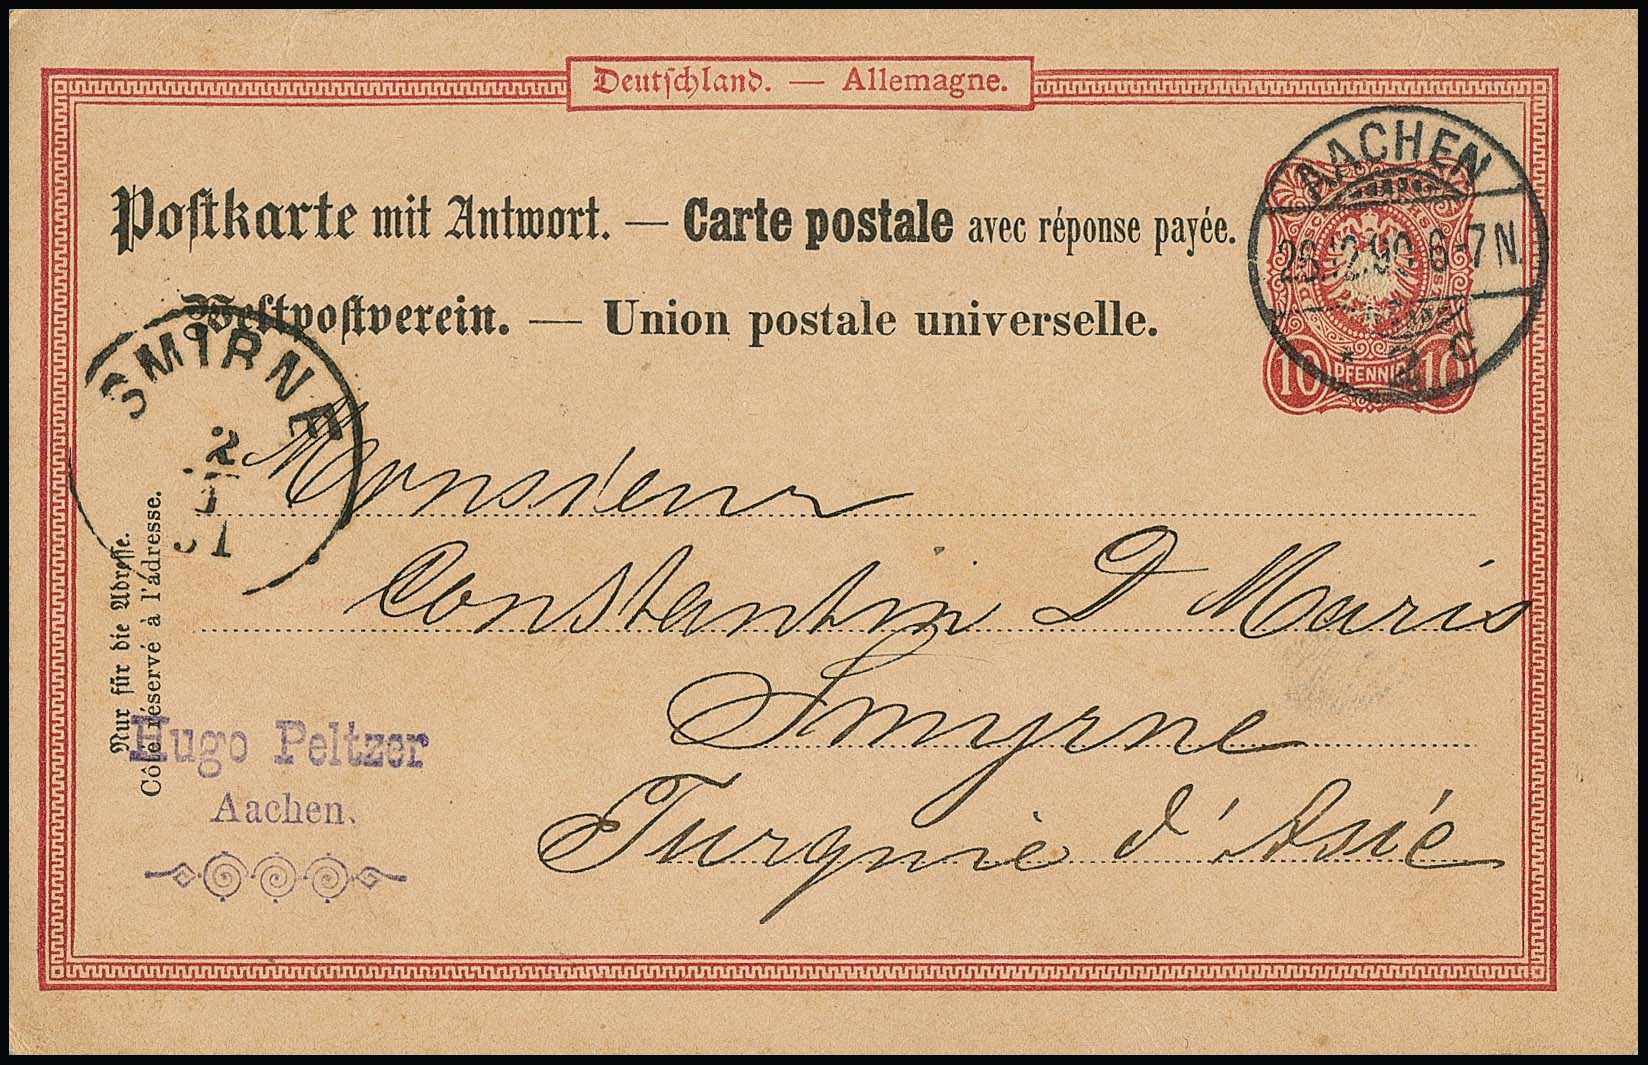 Deutschland. — Allemagne.
Postkarte mit Antwort. — Carte postale avec réponse payée.
Weltpostverein. — Union postale universelle.
AACHEN
12.90. 6-7N.
* 2 c
10 PFENNIG 10
SMIRNE
2
Nur für die Adresse.
Côté réservé à l'adresse.
Monsieur
Constantin D Muris
Smyrne
Turquie d'Asié
Hugo Peltzer
Aachen.